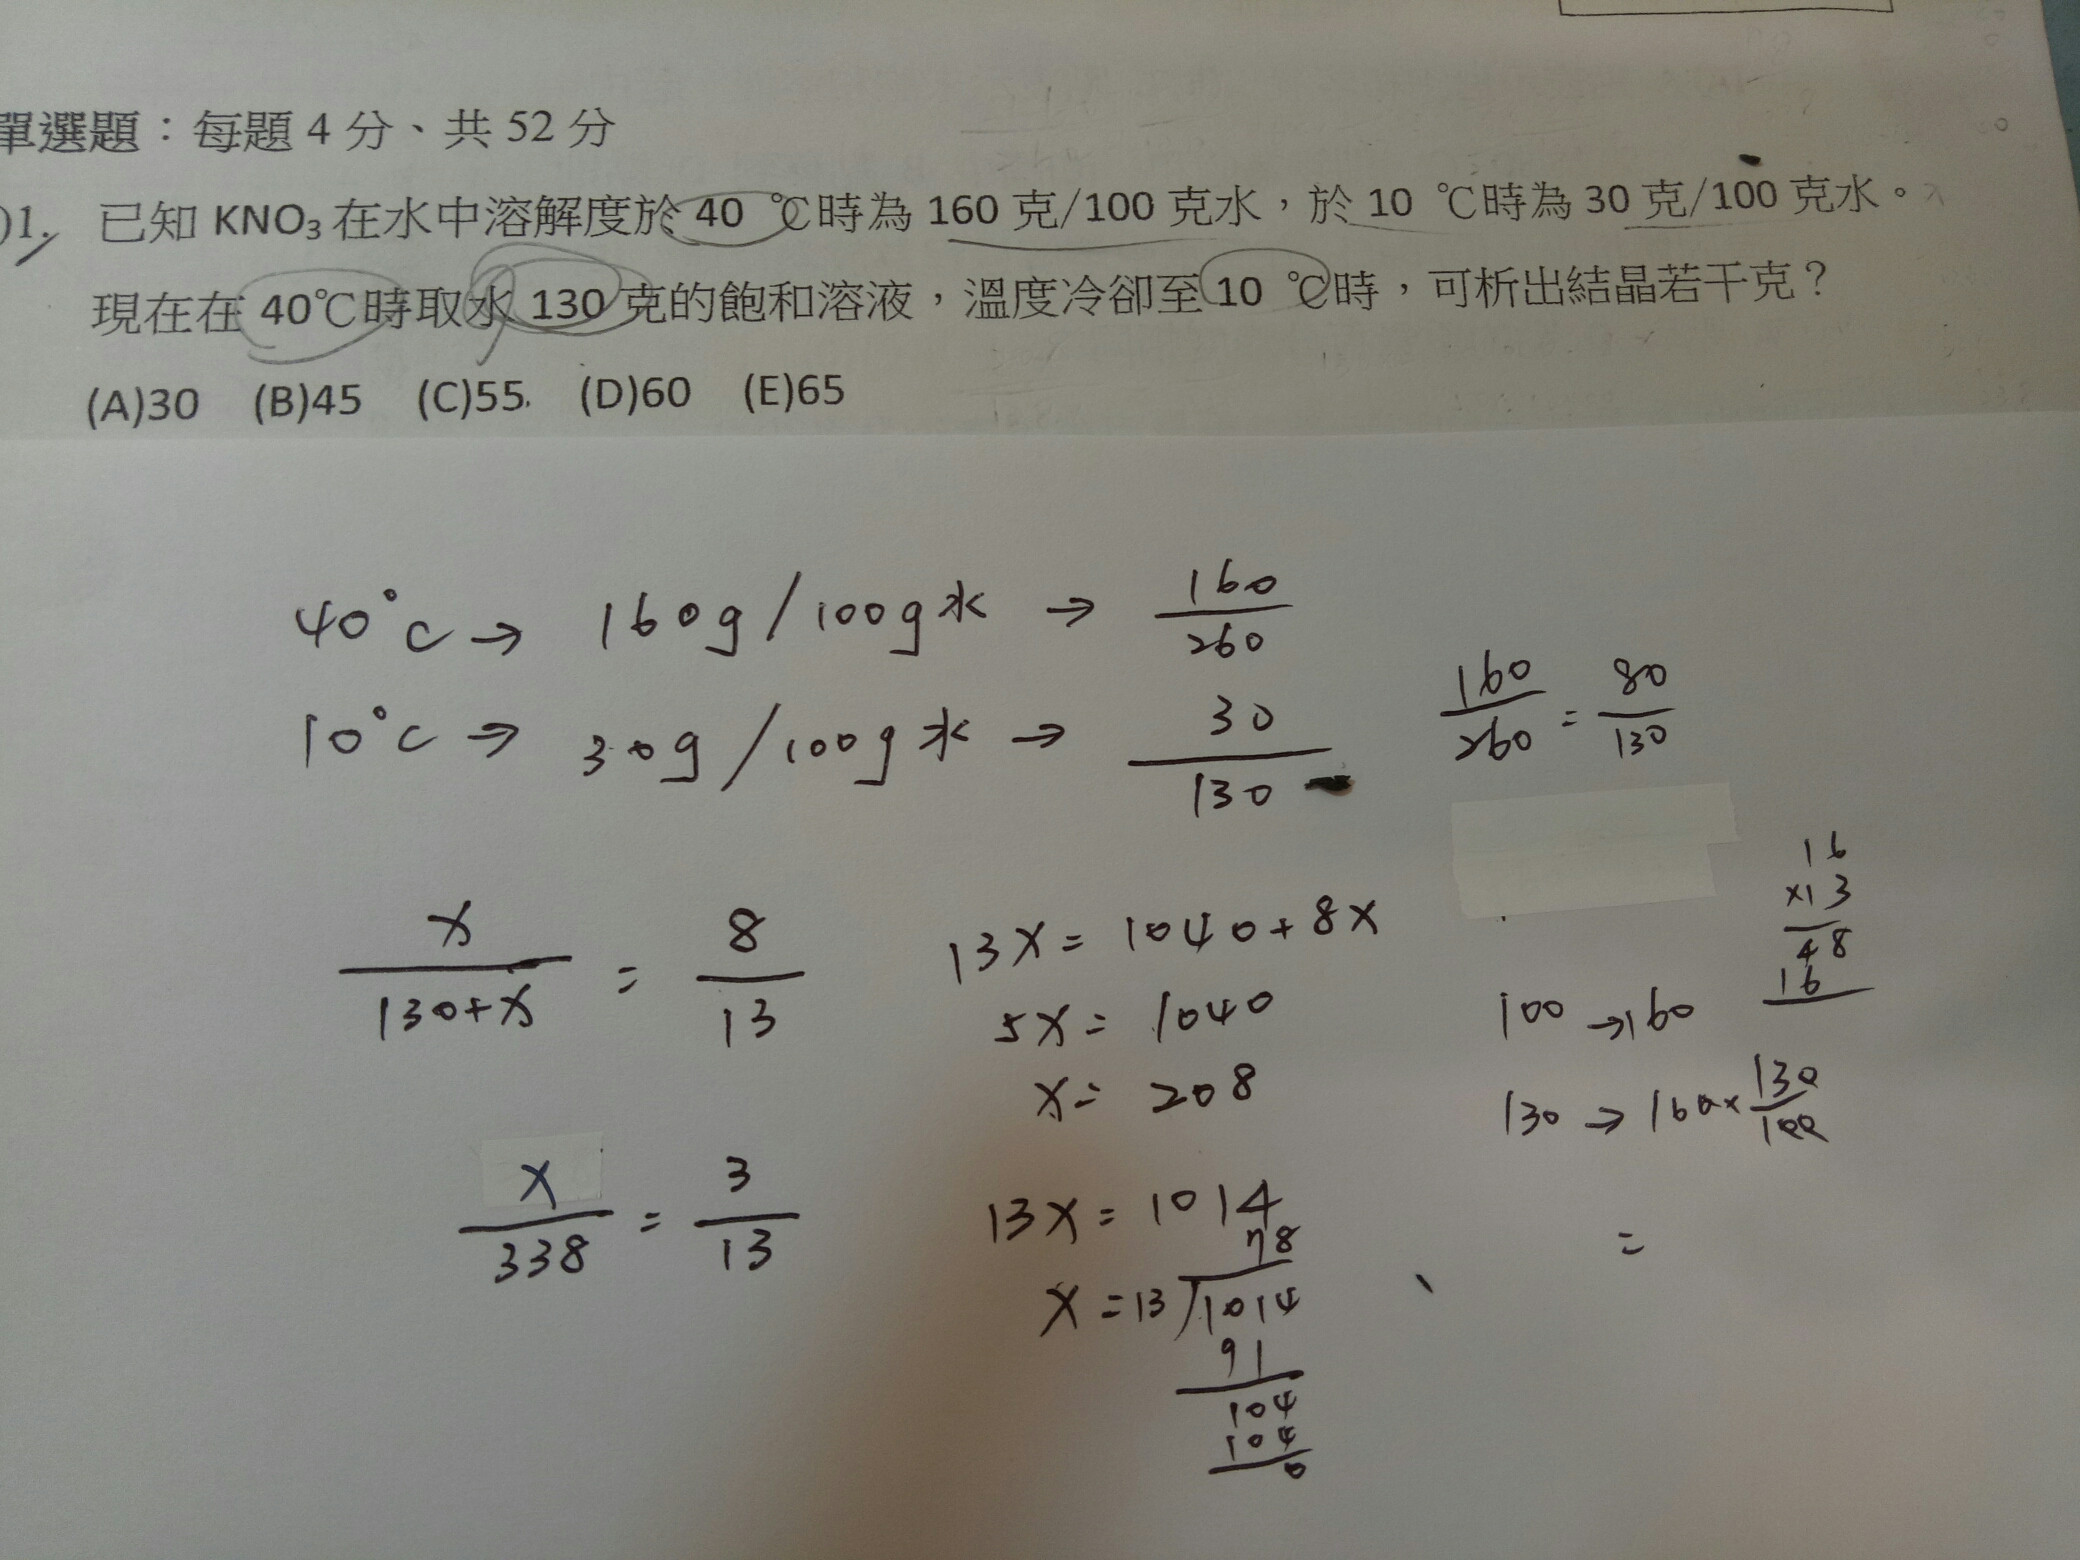 單選題：每題 4 分、共 52 分
)1. 已知 KNO₃ 在水中溶解度於 40 ℃時為 160 克/100 克水，於 10 ℃時為 30 克/100 克水。
現在在 40℃時取水 130 克的飽和溶液，溫度冷卻至 10 ℃時，可析出結晶若干克？
(A)30 (B)45 (C)55. (D)60 (E)65
40°C → 160g/100g水 → 160/260
10°C → 30g/100g水 → 30/130
160/260 = 80/130
x/(130+x) = 8/13
13x = 1040+8x
5x = 1040
x = 208
16
x13
48
16
100 → 160
130 → 160x 130/100
=
x/338 = 3/13
13x = 1014
78
x = 13)1014
91
104
104
0